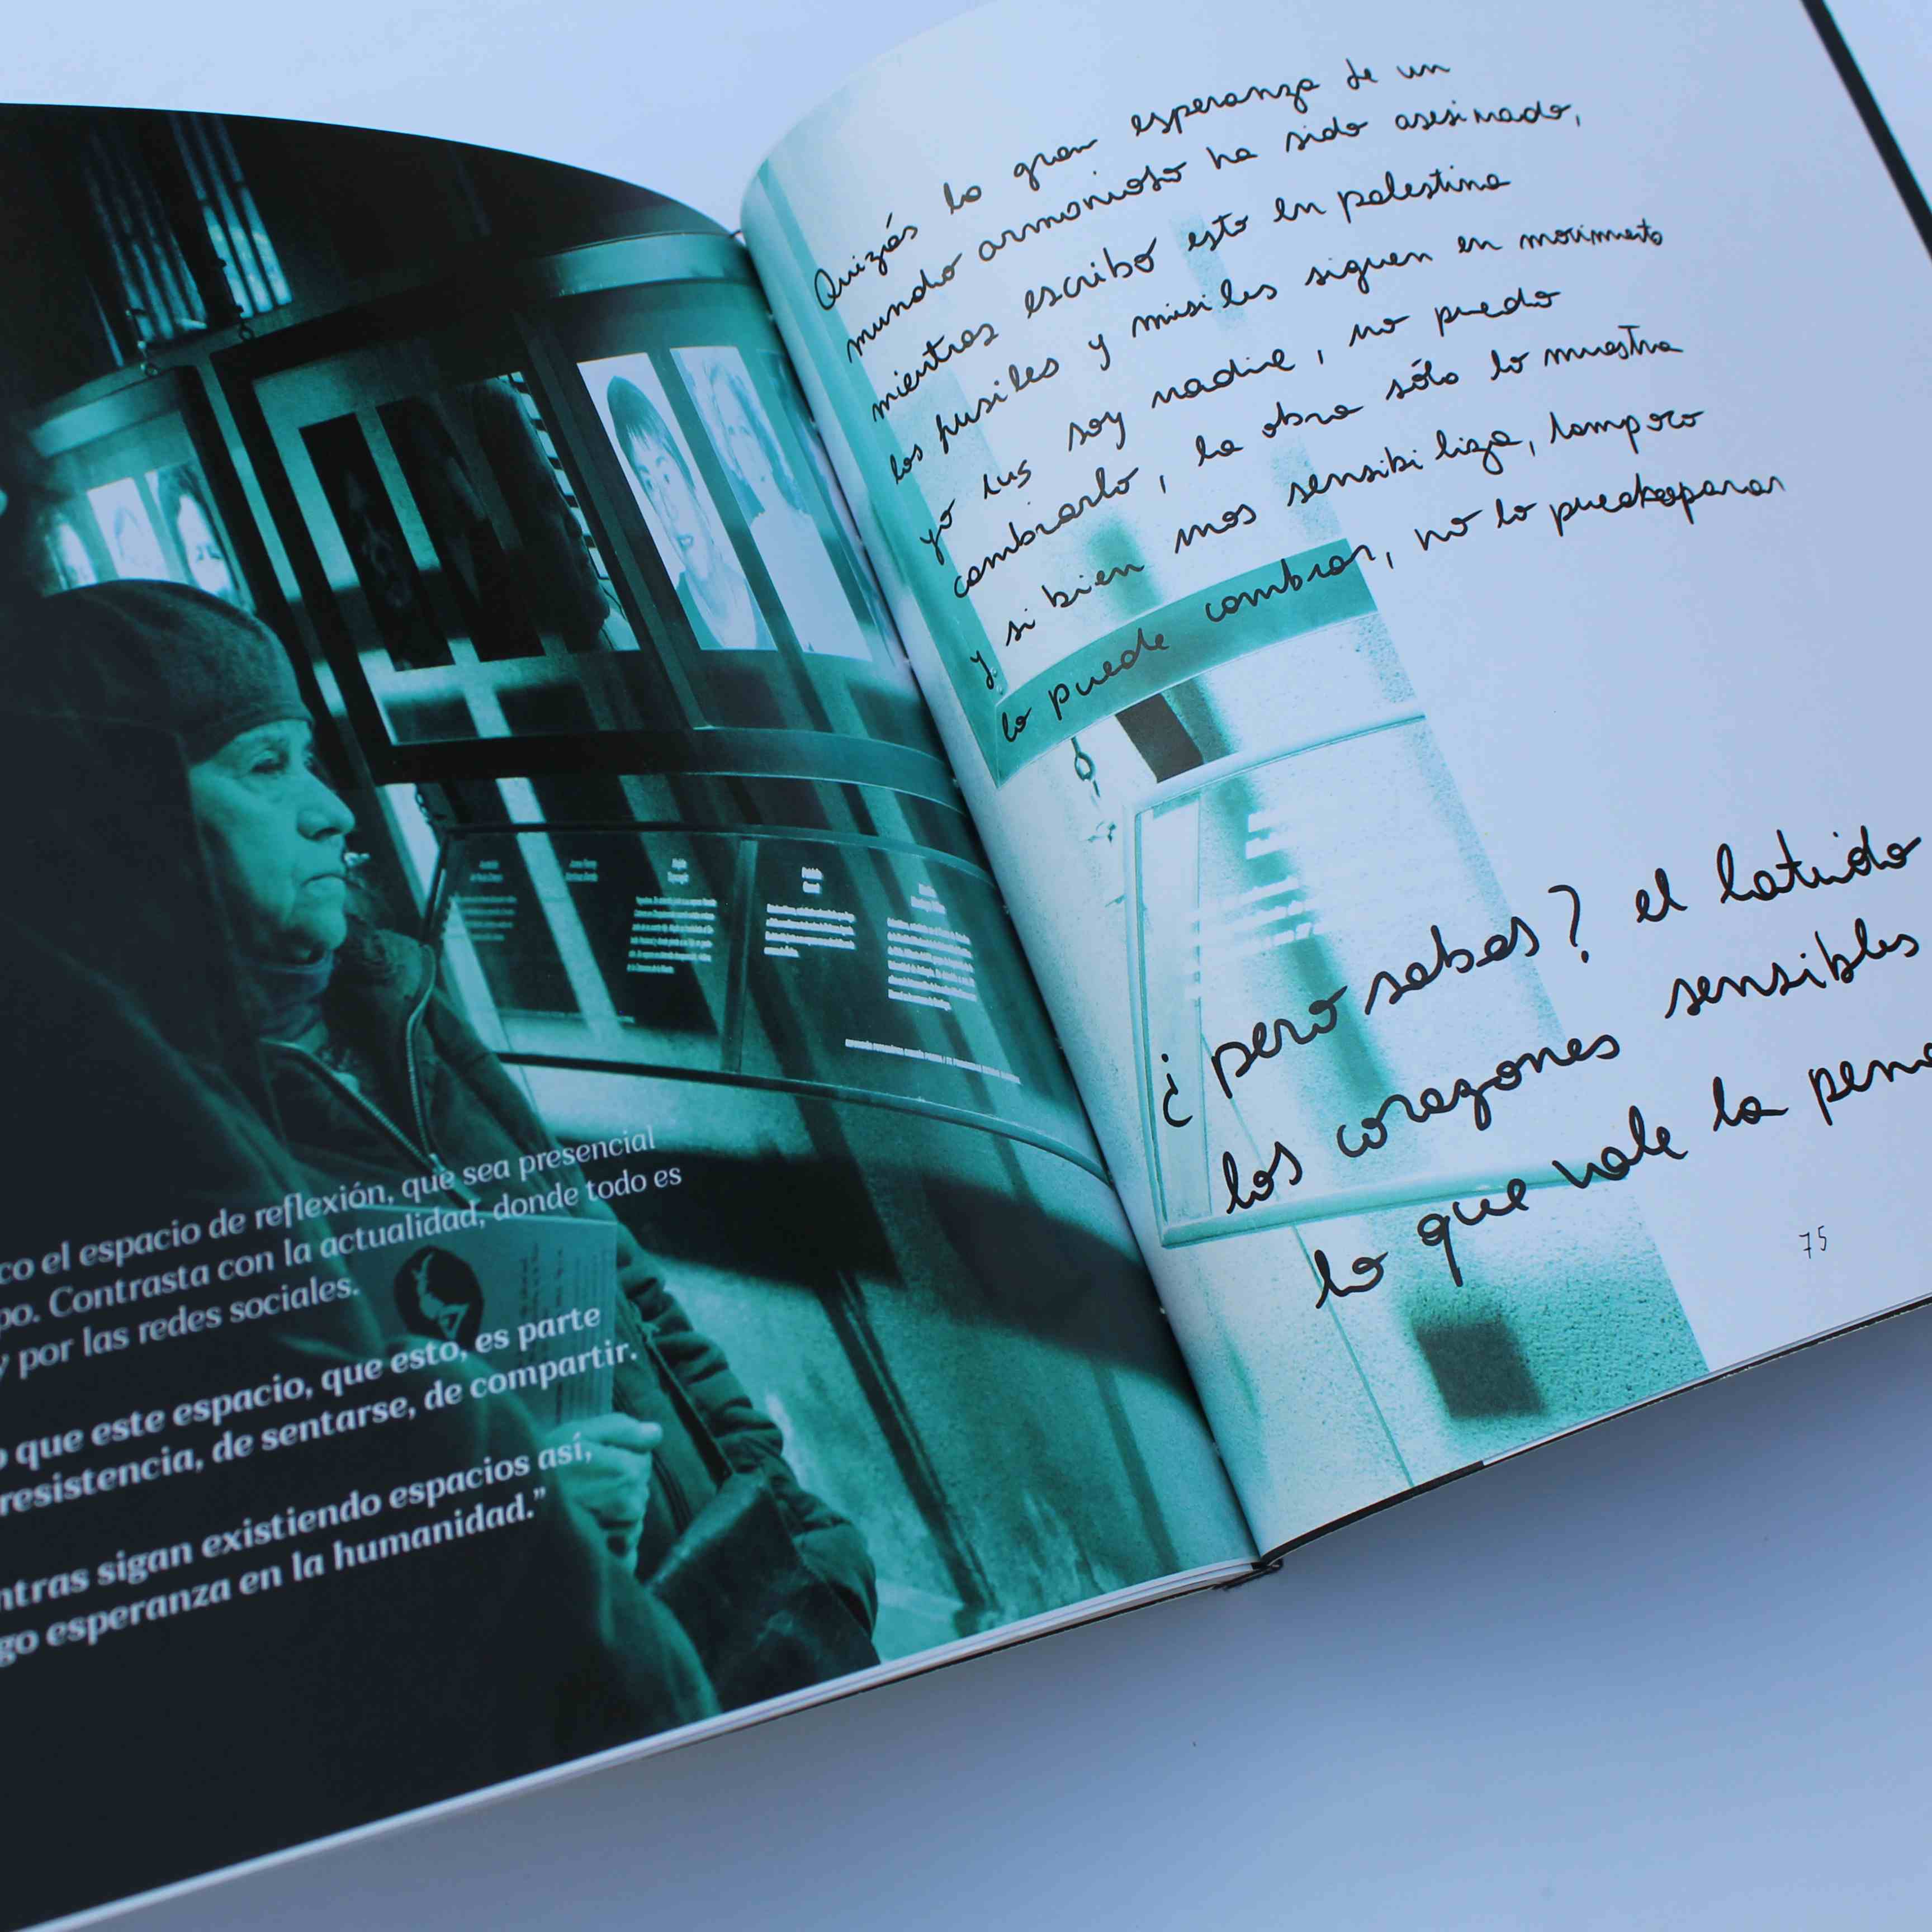 co el espacio de reflexión, que sea presencial
po. Contrasta con la actualidad, donde todo es
y por las redes sociales.
o que este espacio, que esto, es parte
resistencia, de sentarse, de compartir.
ntras sigan existiendo espacios así,
go esperanza en la humanidad.”
Quizás la gran esperanza de un
mundo armonioso ha sido asesinado,
mientras escribo esto en palestina
los fusiles y misiles siguen en movimiento
yo sus soy nadie, no puedo
cambiarlo, la obra sólo lo muestra
y si bien nos sensibiliza, tampoco
lo puede cambiar, no lo puede parar
¿pero sabes? el latido
los corazones sensibles
lo que vale la pena
75